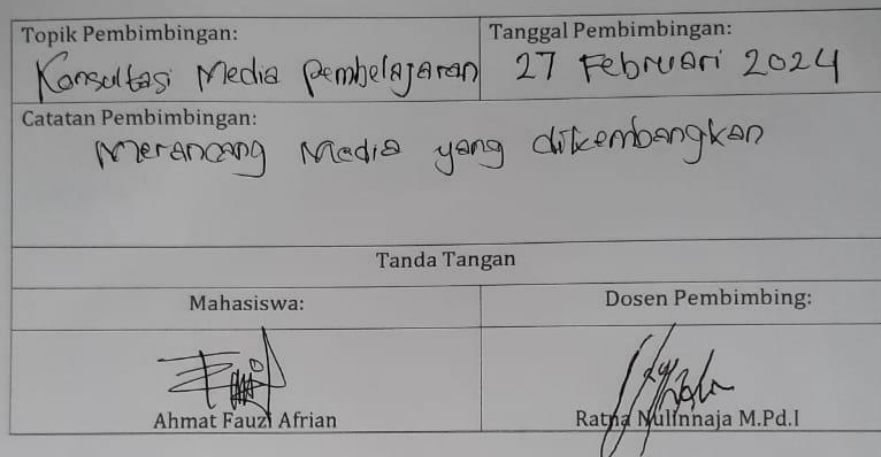 Topik Pembimbingan:
Konsultasi Media Pembelajaran
Tanggal Pembimbingan:
27 Februari 2024
Catatan Pembimbingan:
Merancang Media yang dikembangkan
Tanda Tangan
Mahasiswa:
Dosen Pembimbing:
Ahmat Fauzi Afrian
Ratna Nulinnaja M.Pd.I